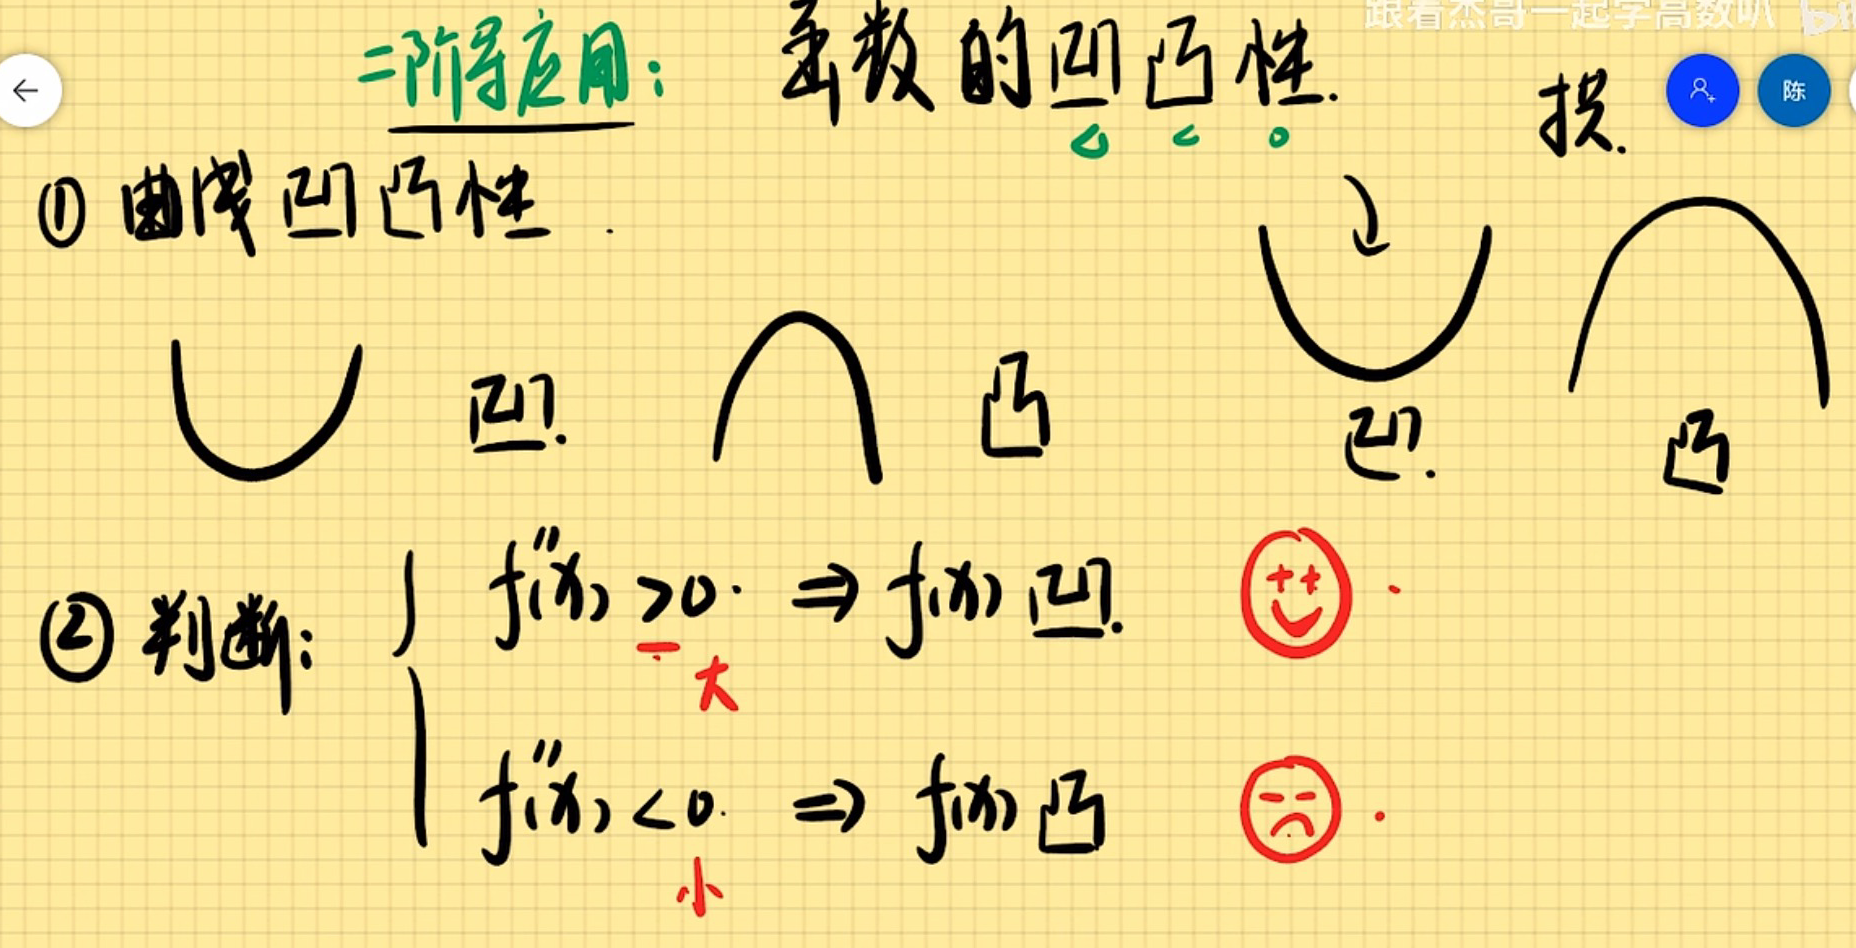 跟着杰哥一起学高数叭 bili
二阶导应用： 函数的凹凸性.
拱.
陈
① 曲线凹凸性.
凹. 凸 凹. 凸
② 判断:
f''(x) >0. ⇒ f(x) 凹.
大
f''(x) <0. ⇒ f(x) 凸
小